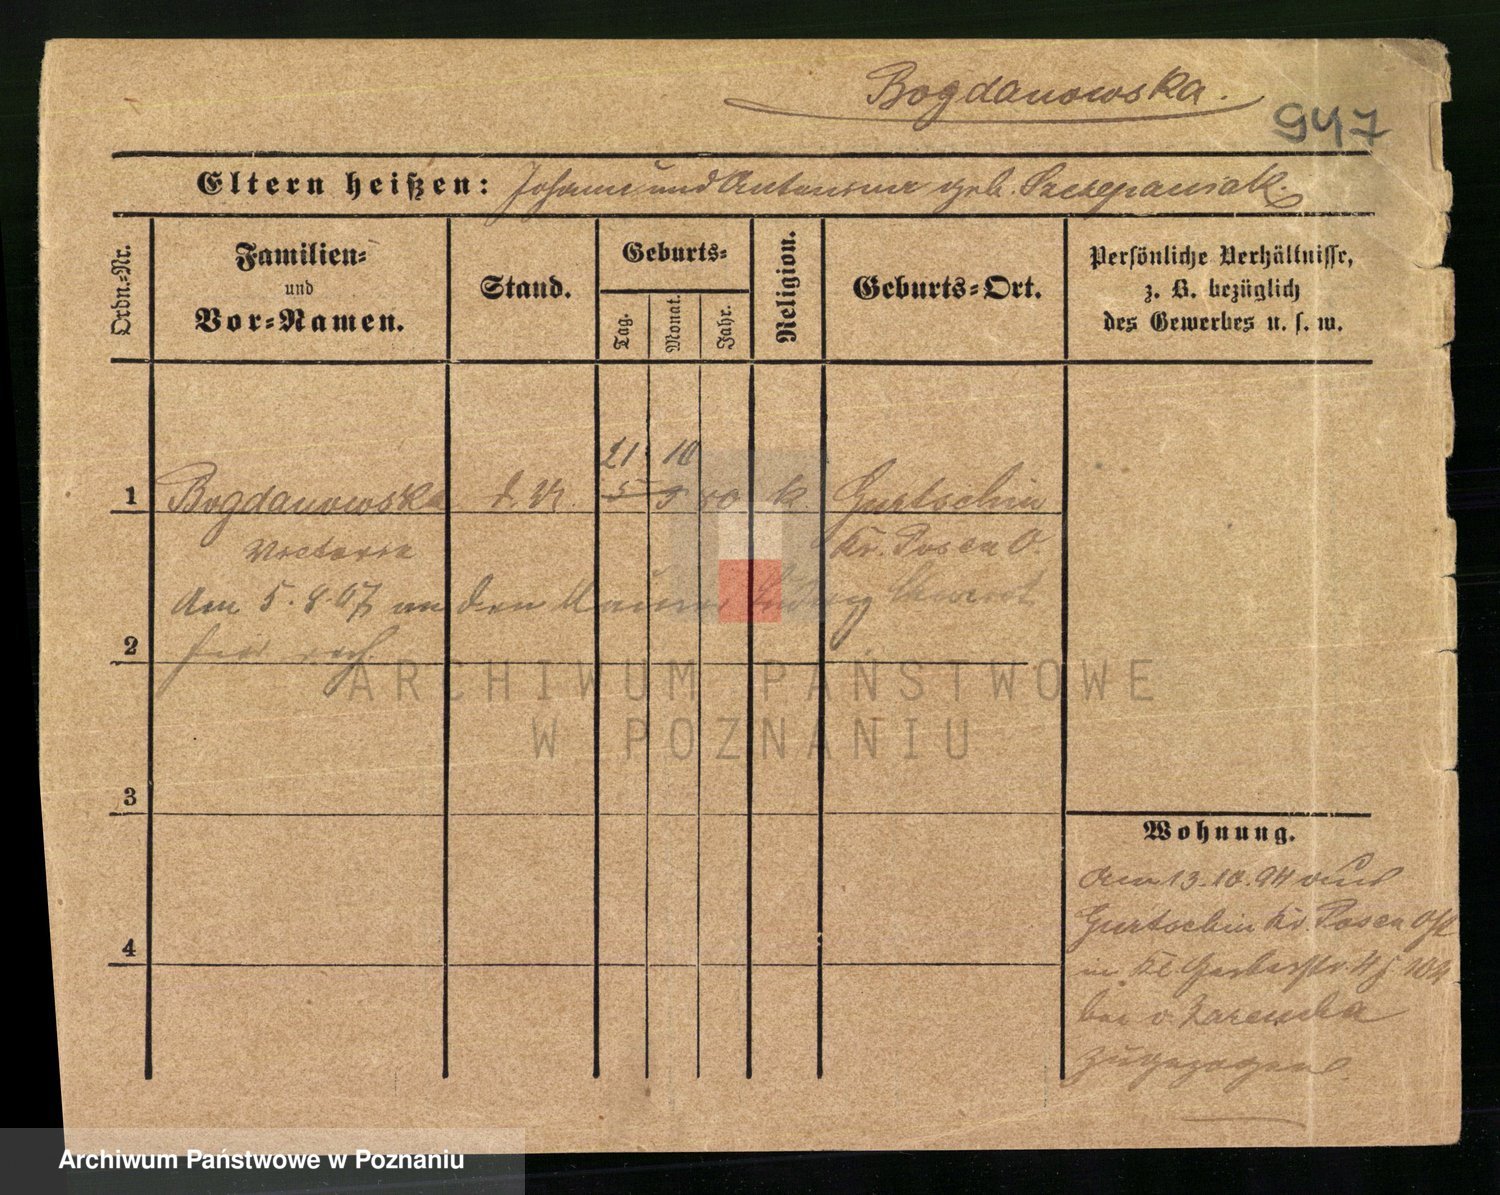 Bogdanowska.
947
Eltern heißen: Johann und Antonina geb. Szczepaniak.
Ordn.-Nr.
Familien-
und
Vor-Namen.
Stand.
Geburts-
Tag.
Monat.
Jahr.
Religion.
Geburts-Ort.
Persönliche Verhältnisse,
z. B. bezüglich
des Gewerbes u. s. w.
21 10
1 Bogdanowska 5 9 80 k. Gurtschin
Victoria Kr. Posen O.
Am 5. 8. 07 an den Maurer Ludwig
2
3
4
Wohnung.
Am 13.10.94 aus
Gurtschin Kr. Posen Ost
in Kl. Gerberstr. 4
bei v. Zaremba
zugezogen.
ARCHIWUM PAŃSTWOWE
W POZNANIU
Archiwum Państwowe w Poznaniu